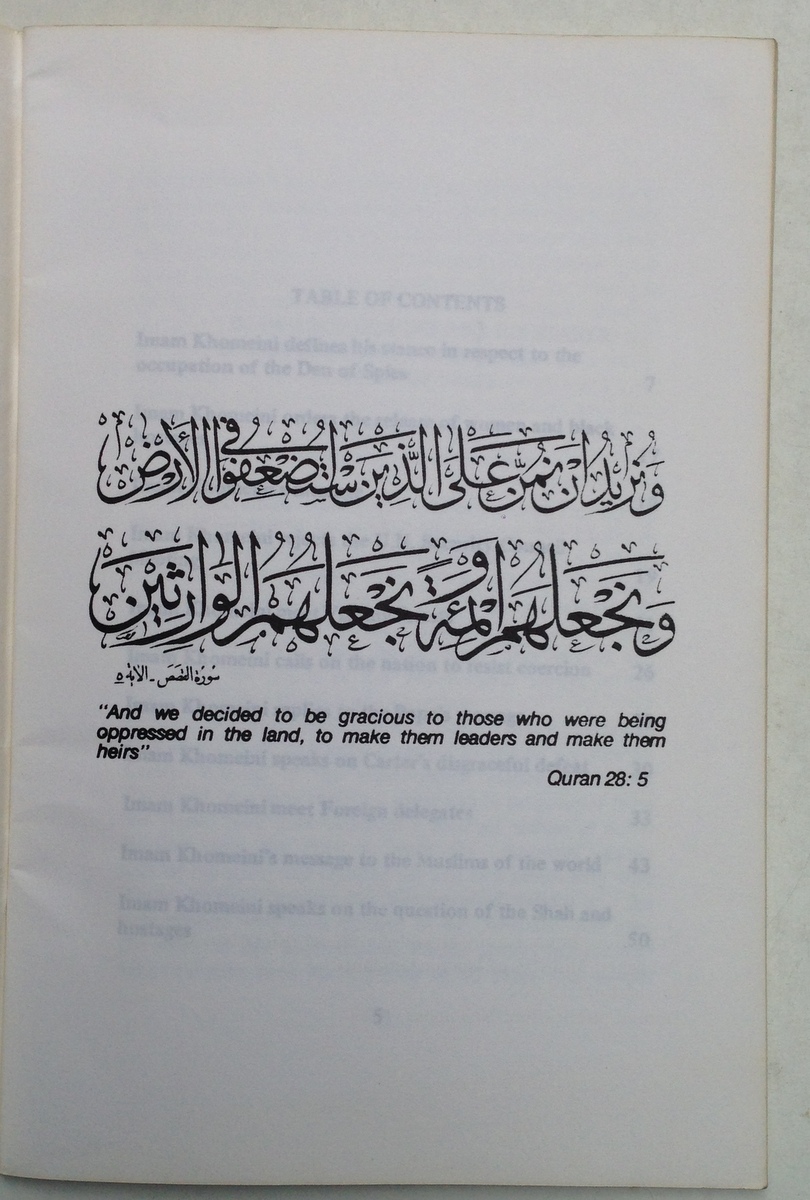 TABLE OF CONTENTS
Imam Khomeini defines his stance in respect to the
occupation of the Den of Spies 7
ونريد ان نمن على الذين استضعفوا في الأرض
ونجعلهم ائمة ونجعلهم الوارثين
Imam Khomeini calls on the nation to resist coercion 26
سورة القصص - الاية ٥
"And we decided to be gracious to those who were being
oppressed in the land, to make them leaders and make them
heirs"
Imam Khomeini speaks on Carter's disgraceful defeat
Quran 28: 5
Imam Khomeini meet Foreign delegates 33
Imam Khomeini's message to the Muslims of the world 43
Imam Khomeini speaks on the question of the Shah and
hostages 50
5